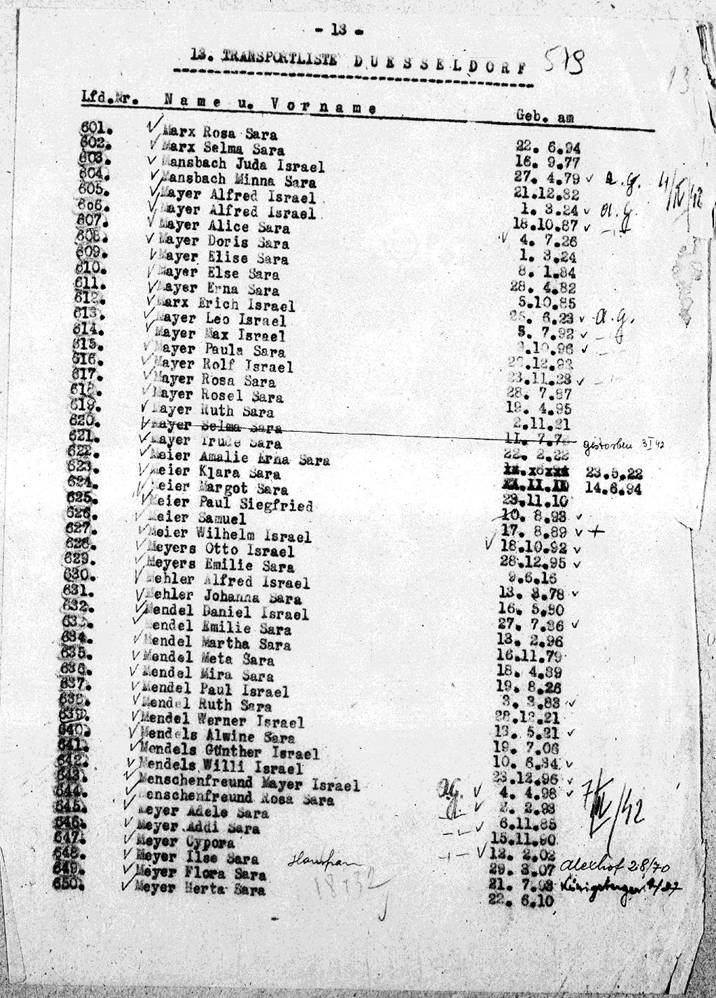 - 13 -
13. TRANSPORTLISTE DUESSELDORF 519
13
Lfd.Nr. Name u. Vorname Geb. am
601. Marx Rosa Sara 22. 6.94
602. Marx Selma Sara 16. 9.77
603. Mansbach Juda Israel 27. 4.79 a.g. 4/IV/42
604. Mansbach Minna Sara 21.12.82
605. Mayer Alfred Israel 1. 3.24 a.g.
606. Mayer Alfred Israel 18.10.87
607. Mayer Alice Sara 4. 7.26
608. Mayer Doris Sara 1. 3.24
609. Mayer Elise Sara 8. 1.84
610. Mayer Else Sara 28. 4.82
611. Mayer Erna Sara 5.10.85
612. Marx Erich Israel 25. 6.23 a.g.
613. Mayer Leo Israel 5. 7.92
614. Mayer Max Israel 9.10.96
615. Mayer Paula Sara
616. Mayer Rolf Israel 23.11.28
617. Mayer Rosa Sara 28. 7.87
618. Mayer Rosel Sara 19. 4.95
619. Mayer Ruth Sara 2.11.21
620. Mayer Selma Sara 11. 7.78 gestorben 3/I 42
621. Mayer Trude Sara 22. 2.22
622. Meier Amalie Erna Sara 23.5.22
623. Meier Klara Sara 14.6.94
624. Meier Margot Sara 23.11.10
625. Meier Paul Siegfried 10. 8.93
626. Meier Samuel 17. 8.89 +
627. Meier Wilhelm Israel 18.10.92
628. Meyers Otto Israel 28.12.95
629. Meyers Emilie Sara 9.6.16
630. Mehler Alfred Israel 13. 8.78
631. Mehler Johanna Sara 16. 5.80
632. Mendel Daniel Israel 27. 7.86
633. Mendel Emilie Sara 13. 2.96
634. Mendel Martha Sara 16.11.79
635. Mendel Meta Sara 18. 4.39
636. Mendel Mira Sara 19. 8.26
637. Mendel Paul Israel 3. 3.83
638. Mendel Ruth Sara 28.12.21
639. Mendel Werner Israel 13. 5.21
640. Mendels Alwine Sara 19. 7.06
641. Mendels Günther Israel 10. 6.34
642. Mendels Willi Israel 23.12.96
643. Menschenfreund Mayer Israel a.g. 4. 4.98 7/IV/42
644. Menschenfreund Rosa Sara 2. 2.93
645. Meyer Adele Sara 6.11.85
646. Meyer Addi Sara 15.11.90
647. Meyer Cypora 13. 2.02
648. Meyer Ilse Sara Hausfrau 29. 3.07 Alexhof 28/70
649. Meyer Flora Sara 18732 21. 7.98 Königsberger
650. Meyer Herta Sara 22. 6.10